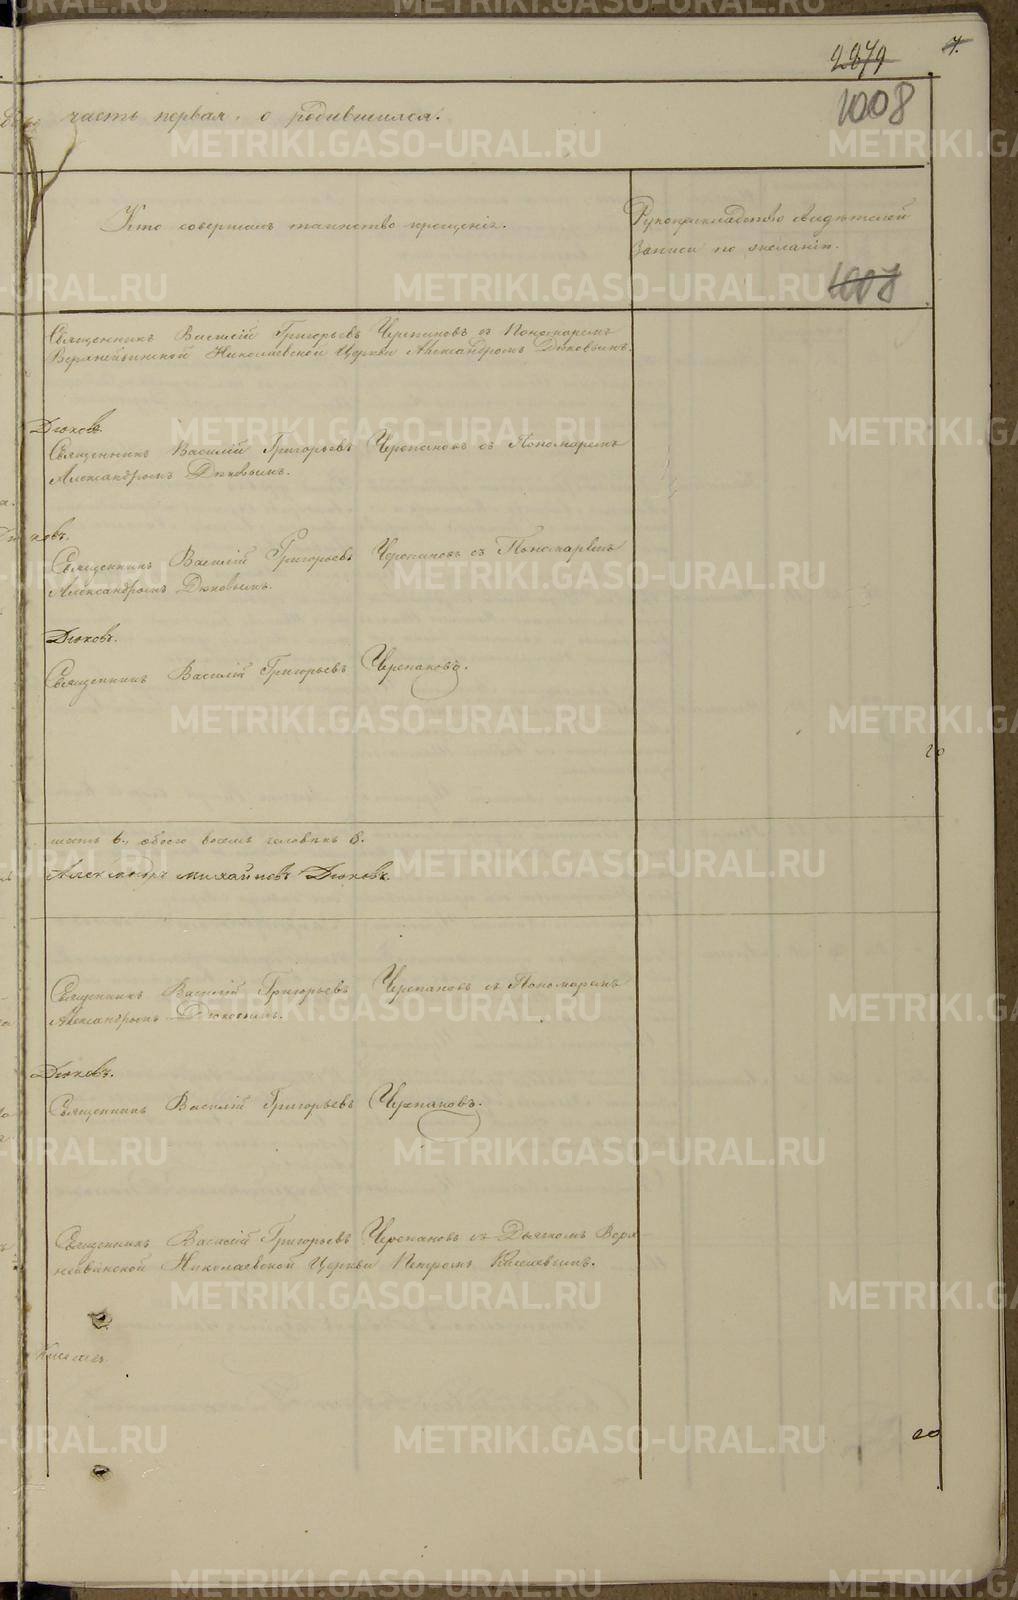 2279
7.
1008
часть первая, о родившихся.
Кто совершалъ таинство крещенія.
Рукоприкладство свидѣтелей
записи по желанію.
1008
Священникъ Василій Григорьевъ Черепановъ съ Пономаремъ
Верхнейвинской Николаевской Церкви Александромъ Дюковымъ.
Дюковъ.
Священникъ Василій Григорьевъ Черепановъ съ Пономаремъ
Александромъ Дюковымъ.
Священникъ Василій Григорьевъ Черепановъ съ Пономаремъ
Александромъ Дюковымъ.
Дюковъ.
Священникъ Василій Григорьевъ Черепановъ.
20
шесть 6., обоего восемь человѣкъ 8.
Александръ Михайловъ Дюковъ
Священникъ Василій Григорьевъ Черепановъ съ Пономаремъ
Александромъ Дюковымъ.
Дюковъ.
Священникъ Василій Григорьевъ Черепановъ.
Священникъ Василій Григорьевъ Черепановъ съ Дьячкомъ Верх
нейвинской Николаевской Церкви Петромъ
20
METRIKI.GASO-URAL.RU